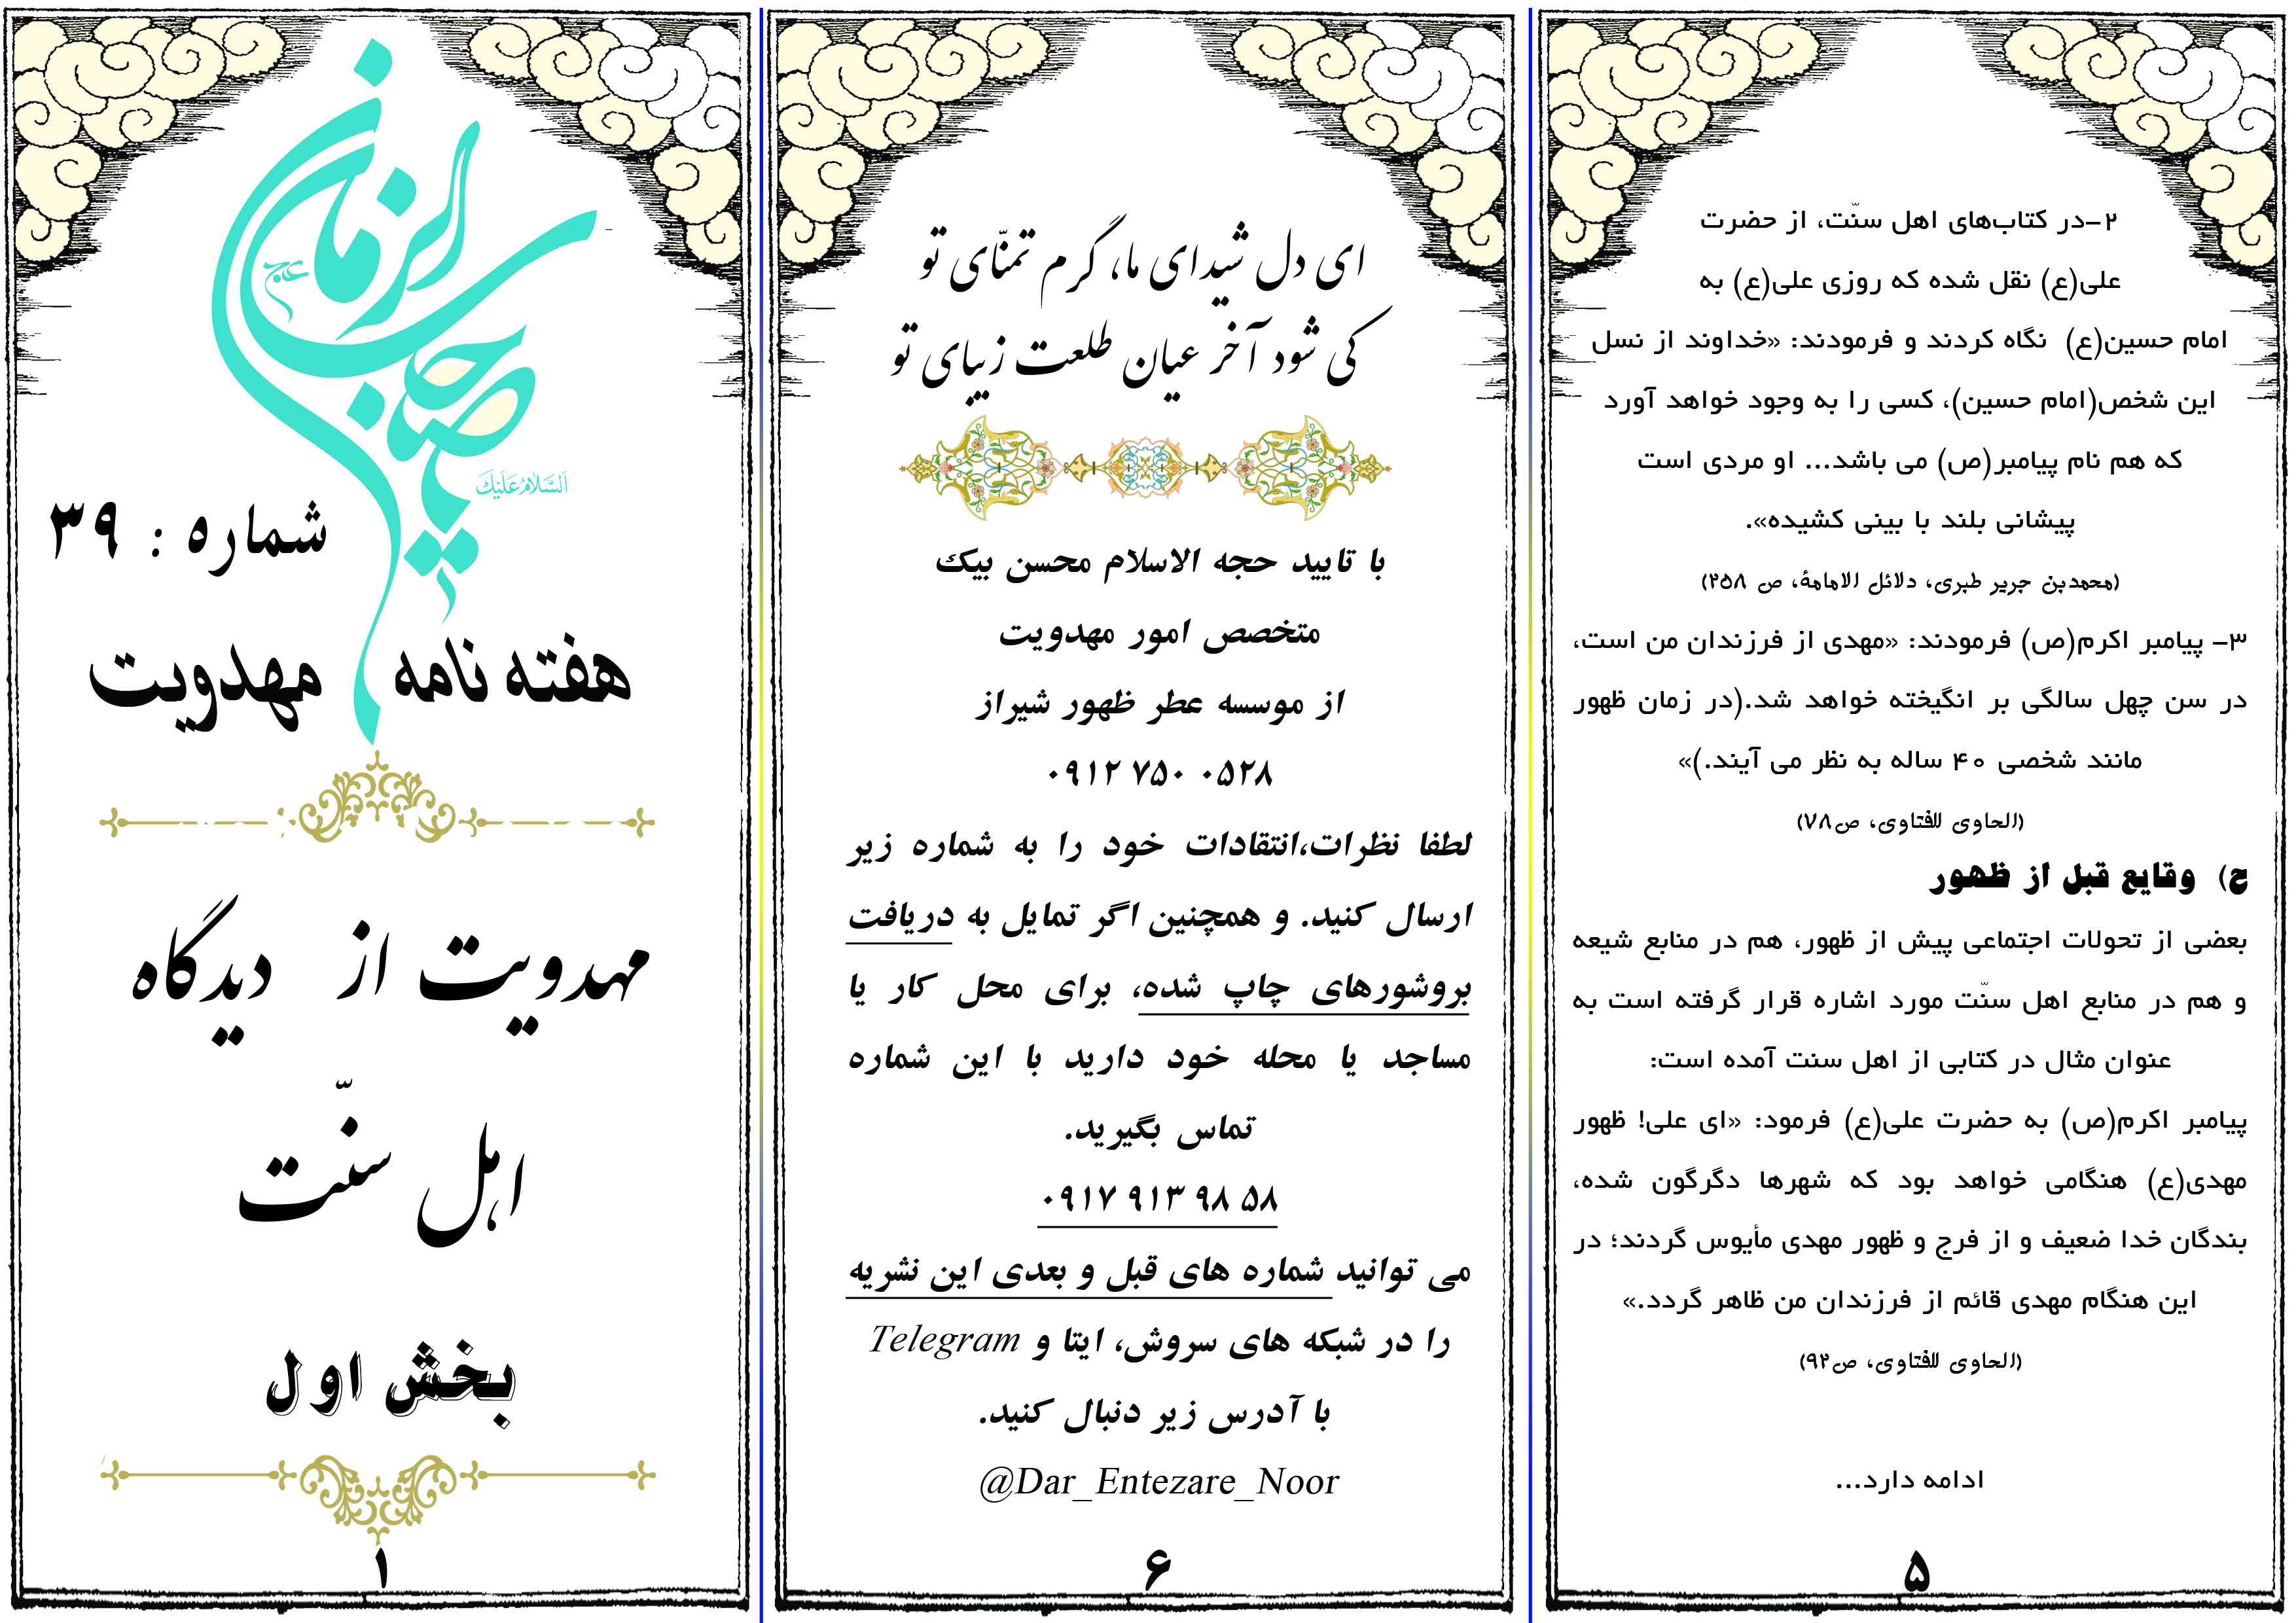 السلام علیک
یا صاحب الزمان
عج
شماره : ۳۹
هفته نامه مهدویت
مهدویت از دیدگاه
اهل سنّت
بخش اول
۱
ای دل شیدای ما، گرم تمنّای تو
کی شود آخر عیان طلعت زیبای تو
با تایید حجه الاسلام محسن بیک
متخصص امور مهدویت
از موسسه عطر ظهور شیراز
۰۹۱۲ ۷۵۰ ۰۵۲۸
لطفا نظرات،انتقادات خود را به شماره زیر
ارسال کنید. و همچنین اگر تمایل به دریافت
بروشورهای چاپ شده، برای محل کار یا
مساجد یا محله خود دارید با این شماره
تماس بگیرید.
۰۹۱۷ ۹۱۳ ۹۸ ۵۸
می توانید شماره های قبل و بعدی این نشریه
را در شبکه های سروش، ایتا و Telegram
با آدرس زیر دنبال کنید.
@Dar_Entezare_Noor
۶
۲-در کتاب‌های اهل سنّت، از حضرت
علی(ع) نقل شده که روزی علی(ع) به
امام حسین(ع) نگاه کردند و فرمودند: «خداوند از نسل
این شخص(امام حسین)، کسی را به وجود خواهد آورد
که هم نام پیامبر(ص) می باشد... او مردی است
پیشانی بلند با بینی کشیده».
(محمدبن جریر طبری، دلائل الامامة، ص ۲۵۸)
۳- پیامبر اکرم(ص) فرمودند: «مهدی از فرزندان من است،
در سن چهل سالگی بر انگیخته خواهد شد.(در زمان ظهور
مانند شخصی ۴۰ ساله به نظر می آیند.)»
(الحاوی للفتاوی، ص۷۸)
ح) وقایع قبل از ظهور
بعضی از تحولات اجتماعی پیش از ظهور، هم در منابع شیعه
و هم در منابع اهل سنّت مورد اشاره قرار گرفته است به
عنوان مثال در کتابی از اهل سنت آمده است:
پیامبر اکرم(ص) به حضرت علی(ع) فرمود: «ای علی! ظهور
مهدی(ع) هنگامی خواهد بود که شهرها دگرگون شده،
بندگان خدا ضعیف و از فرج و ظهور مهدی مأیوس گردند؛ در
این هنگام مهدی قائم از فرزندان من ظاهر گردد.»
(الحاوی للفتاوی، ص۹۲)
ادامه دارد...
۵